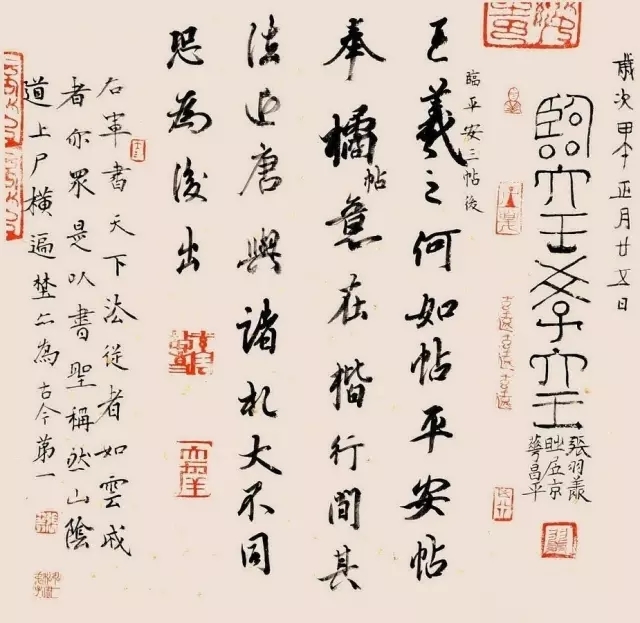 歲次甲午正月廿五日
臨大王學大王
張羽
居京
昌平
臨平安三帖後
王羲之何如帖平安帖
奉橘帖意在楷行間其
法近唐與諸札大不同
恐為後出
右軍書天下法從者如雲
者亦眾是以書聖稱然山陰
道上尸橫遍埜亦為古今第一